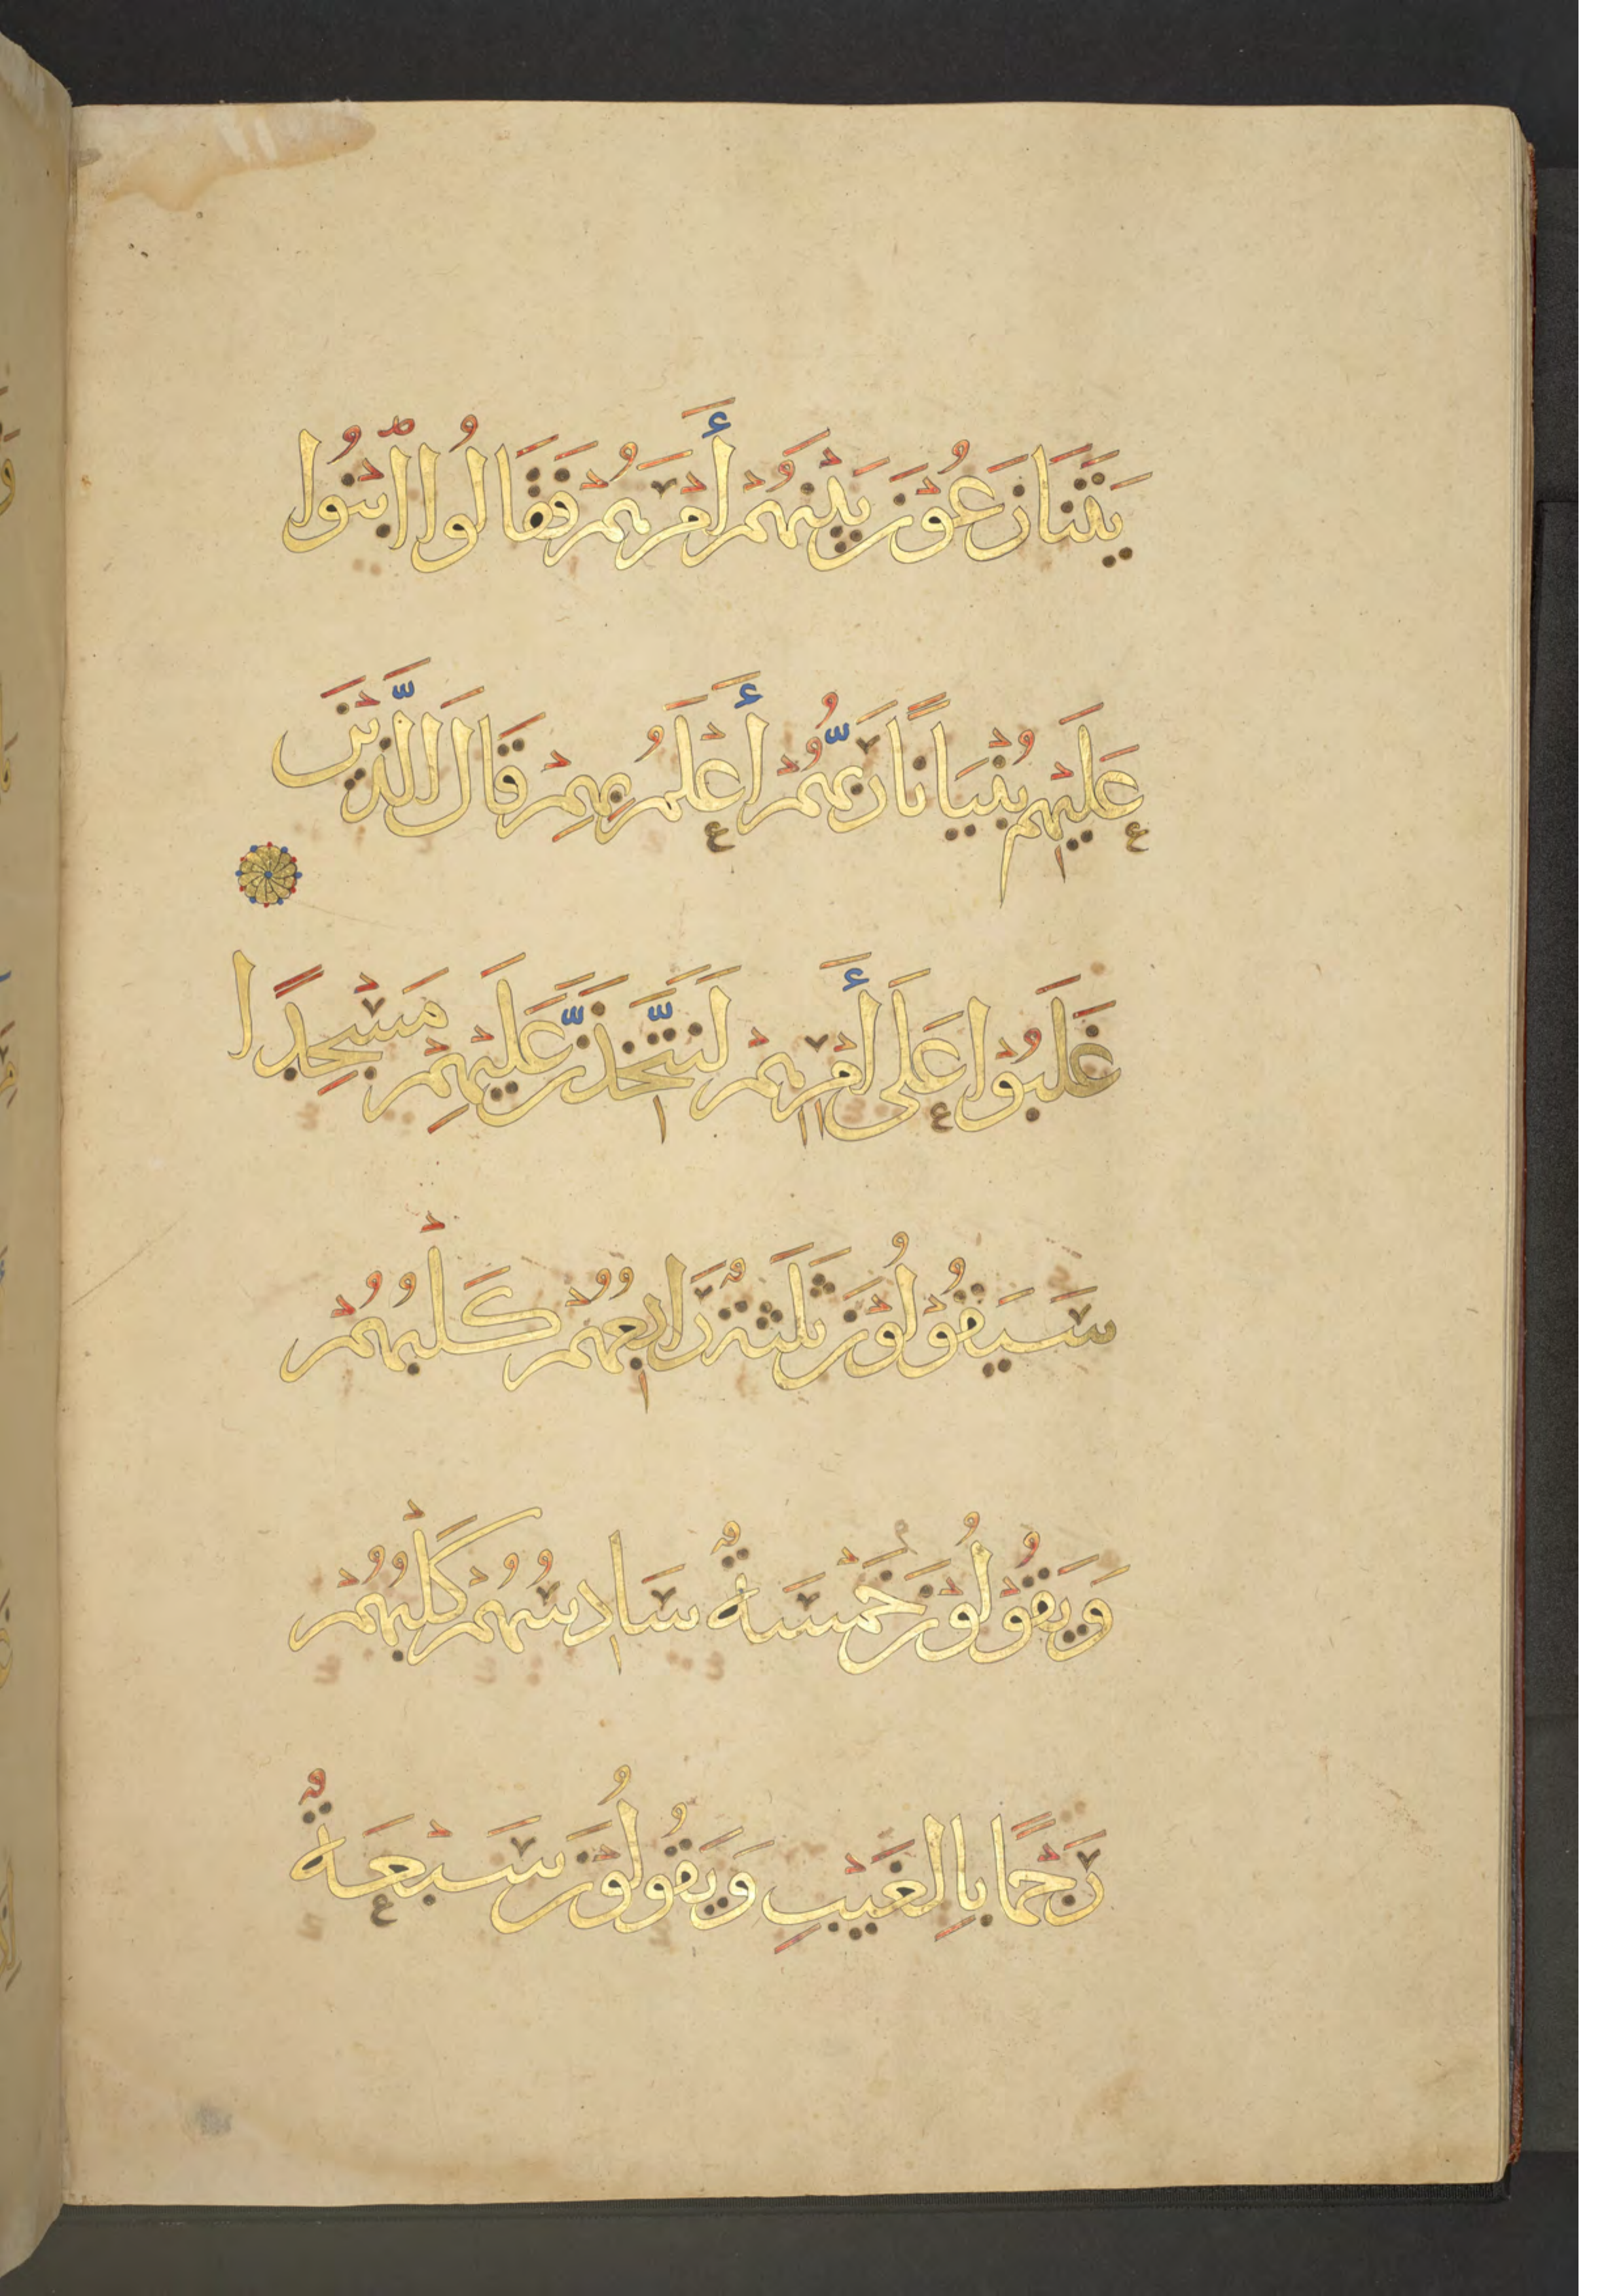 يَتَنَازَعُوْنَ بَيْنَهُمْ أَمْرَهُمْ فَقَالُوا ابْنُوا
عَلَيْهِم بُنْيَانًا رَبُّهُمْ أَعْلَمُ بِهِمْ قَالَ الَّذِيْنَ
غَلَبُوْا عَلَى أَمْرِهِمْ لَنَتَّخِذَنَّ عَلَيْهِمْ مَسْجِدًا
سَيَقُوْلُوْنَ ثَلَثَةٌ رَابِعُهُمْ كَلْبُهُمْ
وَيَقُوْلُوْنَ خَمْسَةٌ سَادِسُهُمْ كَلْبُهُمْ
رَجْمًا بِالْغَيْبِ وَيَقُولُوْنَ سَبْعَةٌ